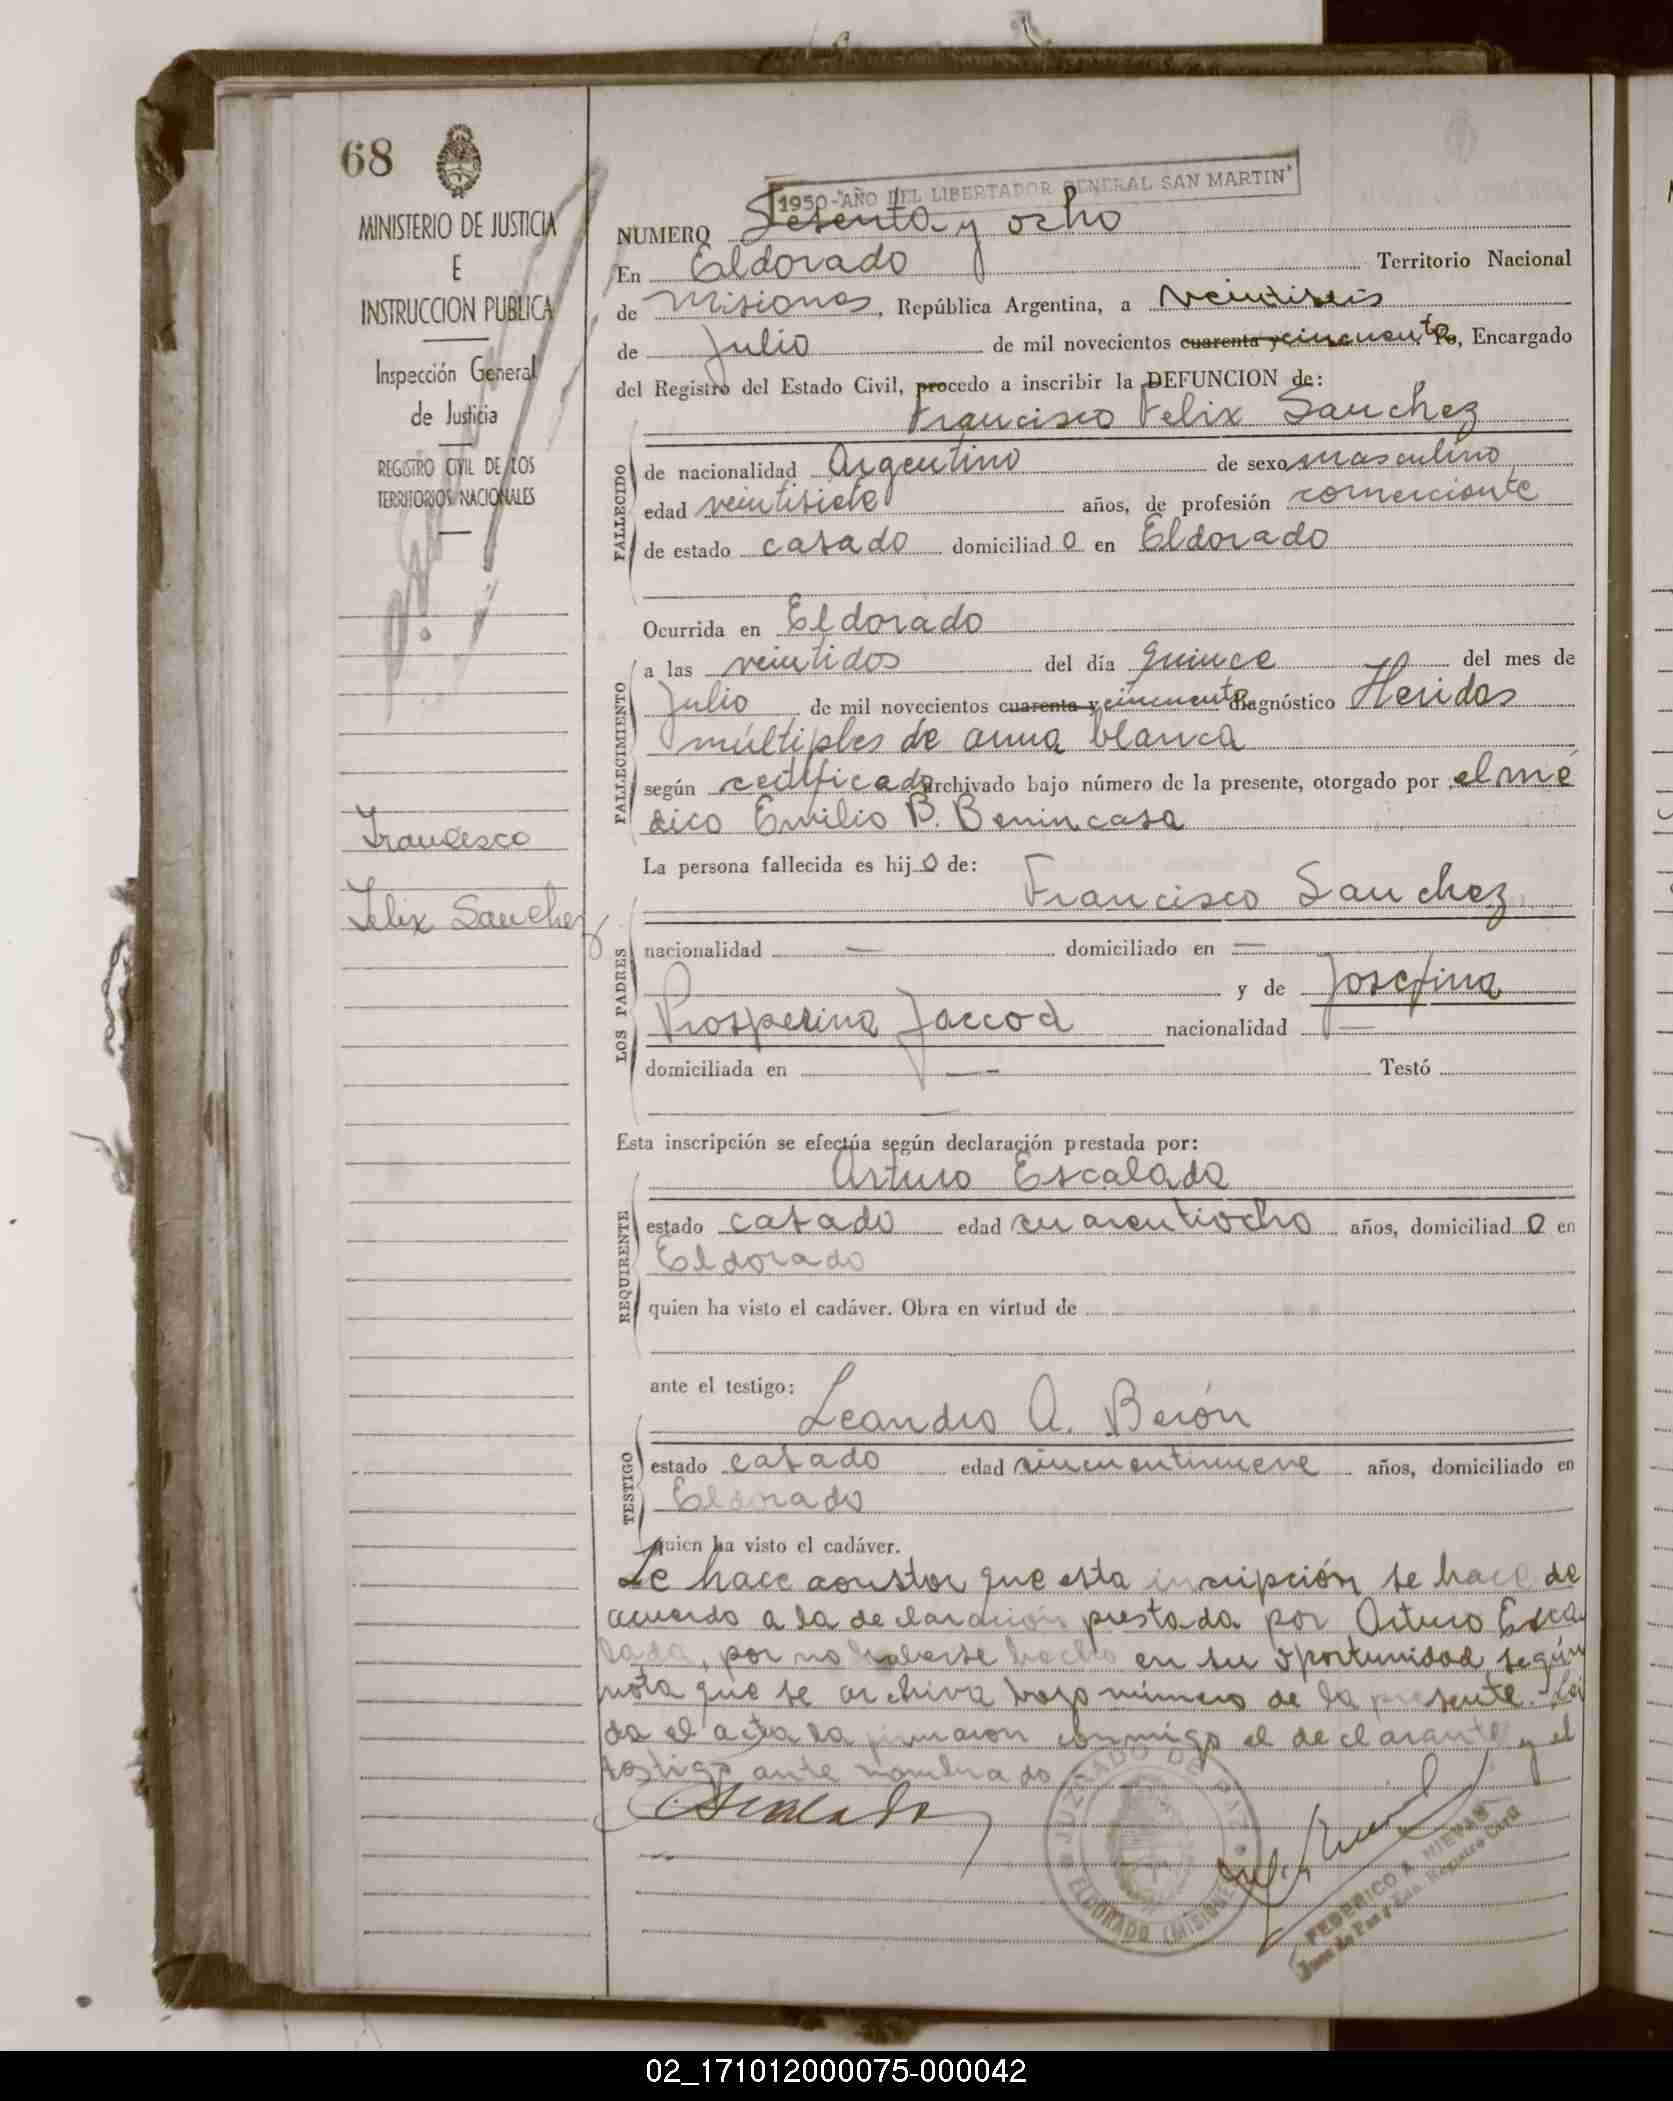 68
MINISTERIO DE JUSTICIA
E
INSTRUCCION PUBLICA
Inspección General
de Justicia
REGISTRO CIVIL DE LOS
TERRITORIOS NACIONALES
Francisco
Felix Sanchez
1950-"AÑO DEL LIBERTADOR GENERAL SAN MARTIN"
NUMERO Sesenta y ocho
En Eldorado Territorio Nacional
de Misiones, República Argentina, a veintiseis
de Julio de mil novecientos cuarenta y cincuenta, Encargado
del Registro del Estado Civil, procedo a inscribir la DEFUNCION de:
Francisco Felix Sanchez
FALLECIDO
de nacionalidad Argentino de sexo masculino
edad veintisiete años, de profesión comerciante
de estado casado domiciliad o en Eldorado
Ocurrida en Eldorado
FALLECIMIENTO
a las veintidos del día quince del mes de
Julio de mil novecientos cuarenta y cincuenta diagnóstico Heridas
múltiples de arma blanca
según certificado archivado bajo número de la presente, otorgado por el mé
dico Emilio B. Benincasa
La persona fallecida es hij o de:
Francisco Sanchez
LOS PADRES
nacionalidad — domiciliado en —
y de Josefina
Prosperina Jaccod nacionalidad —
domiciliada en — Testó
—
Esta inscripción se efectúa según declaración prestada por:
Arturo Escalada
REQUIRENTE
estado casado edad cuarentiocho años, domiciliad o en
Eldorado
quien ha visto el cadáver. Obra en virtud de
ante el testigo:
Leandro A. Berón
TESTIGO
estado casado edad cincuentinueve años, domiciliado en
Eldorado
quien ha visto el cadáver.
Se hace constar que esta inscripción se hace de
acuerdo a la declaración prestada por Arturo Esca
lada, por no haberse hecho en su oportunidad según
nota que se archiva bajo número de la presente. Leí
da el acta la firmaron conmigo el declarante y el
testigo ante nombrado
Escalada
JUZGADO DE PAZ
ELDORADO (MISIONES)
FEDERICO A. NIEVAS
Juez de Paz y Enc. Registro Civil
02_171012000075-000042